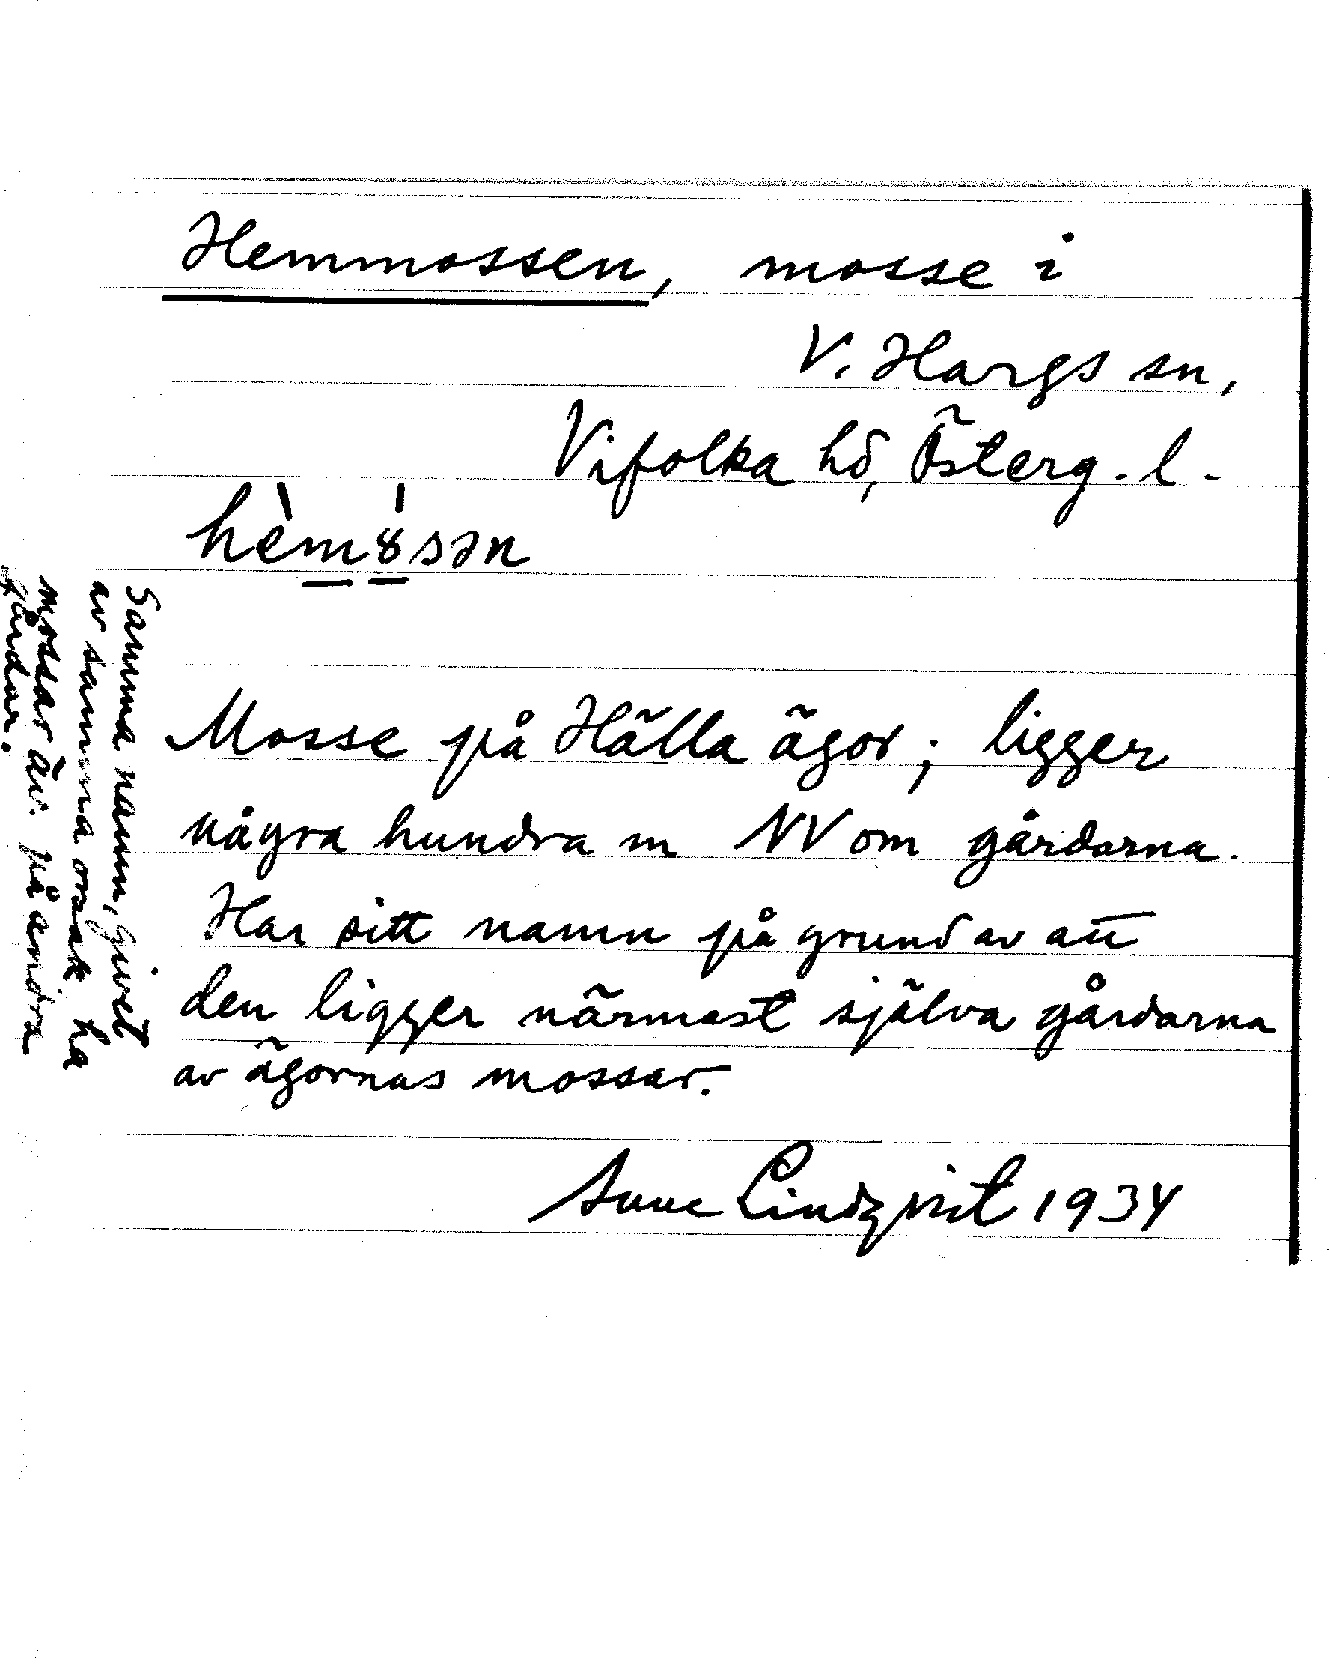 Hemmossen, mosse i
V. Hargs sn,
Vifolka hd, Österg. l.
hèm8́sən
Mosse på Hälla ägor; ligger
några hundra m NV om gårdarna.
Har sitt namn på grund av att
den ligger närmast själva gårdarna
av ägornas mossar.
Sune Lindqvist 1934
Samma namn, givet
av samma orsak ha
mossar äv. på andra
gårdar.